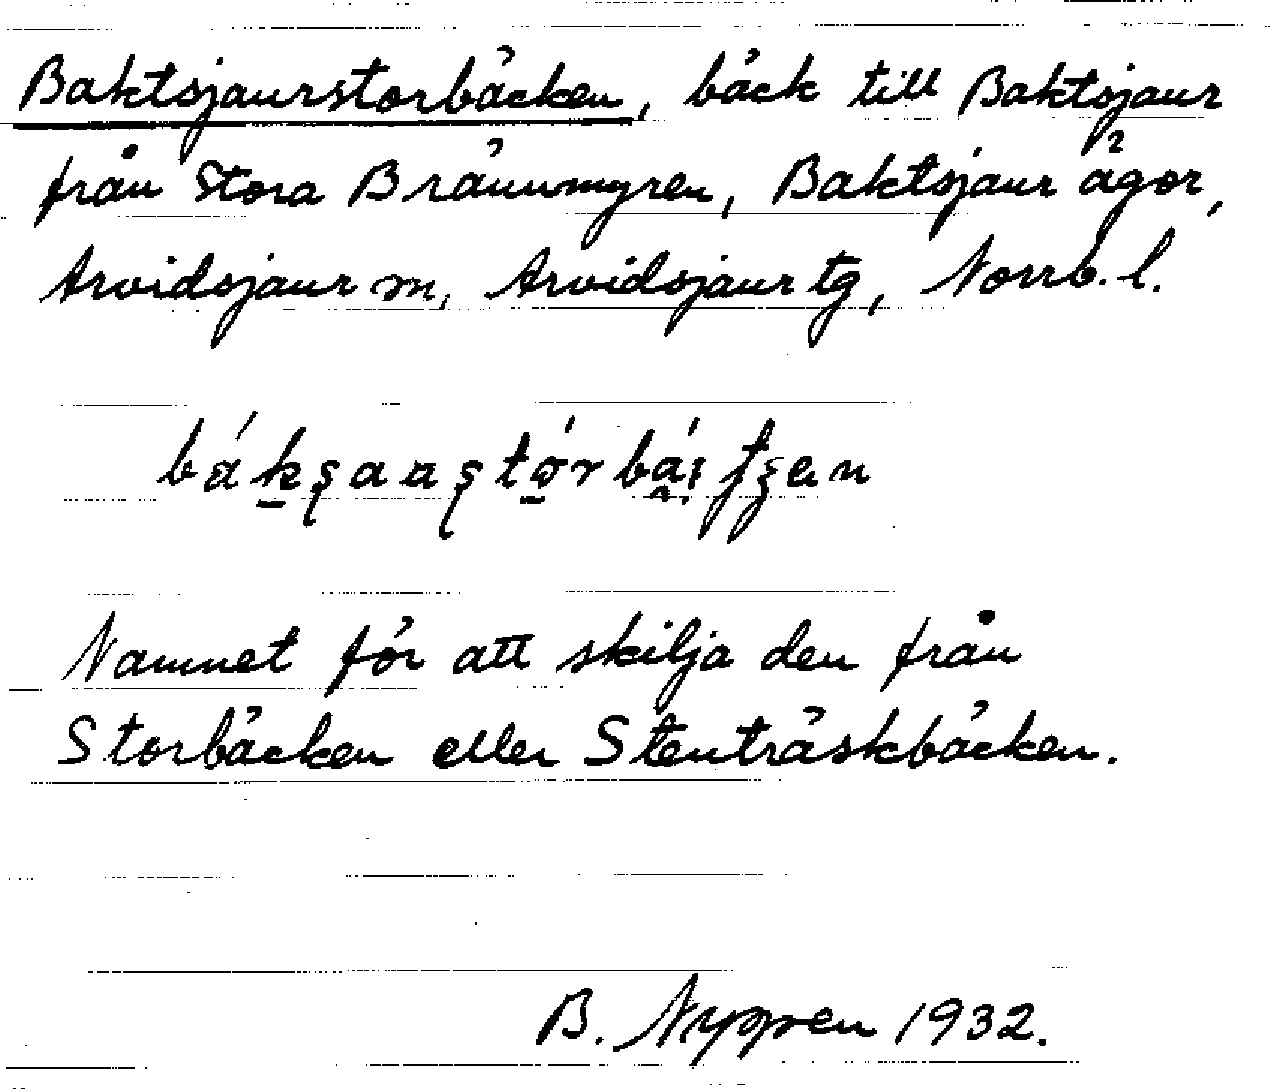 Baktsjaurstorbäcken, bäck till Baktsjaur
från Stora Brännmyren, Baktsjaur ägor,
Arvidsjaur sn, Arvidsjaur tg, Norrb. l.
Namnet för att skilja den från
Storbäcken eller Stenträskbäcken.
B. Nygren 1932.